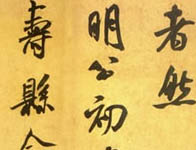 者然
明公初
壽縣令